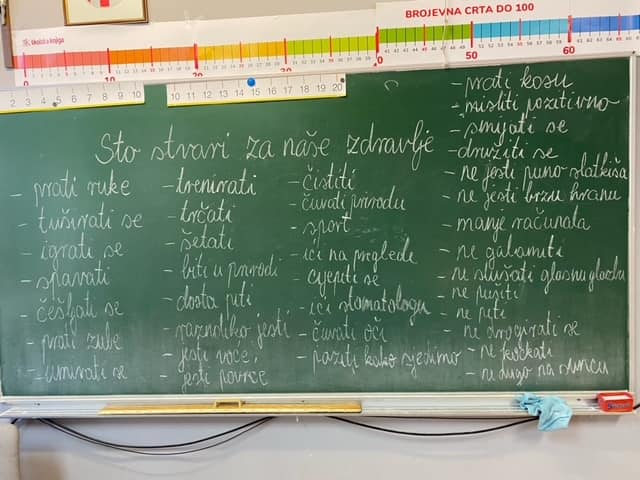 školska knjiga
BROJEVNA CRTA DO 100
10
20
30
40
50
60
2 3 4 5 6 7 8 9 10
10 11 12 13 14 15 16 17 18 19 20
Sto stvari za naše zdravlje
- prati ruke
- tuširati se
- igrati se
- spavati
- češljati se
- prati zube
- umivati se
- trenirati
- trčati
- šetati
- biti u prirodi
- dosta piti
- raznoliko jesti
- jesti voće,
jesti povrće
- čistiti
- čuvati prirodu
- sport
- ići na preglede
- cijepiti se
- ići stomatologu
- čuvati oči
- paziti kako sjedimo
- prati kosu
- misliti pozitivno
- smijati se
- družiti se
- ne jesti puno slatkiša
- ne jesti brzu hranu
- manje računala
- ne galamiti
- ne slušati glasnu glazbu
- ne pušiti
- ne piti
- ne drogirati se
- ne kockati
- ne dugo na suncu